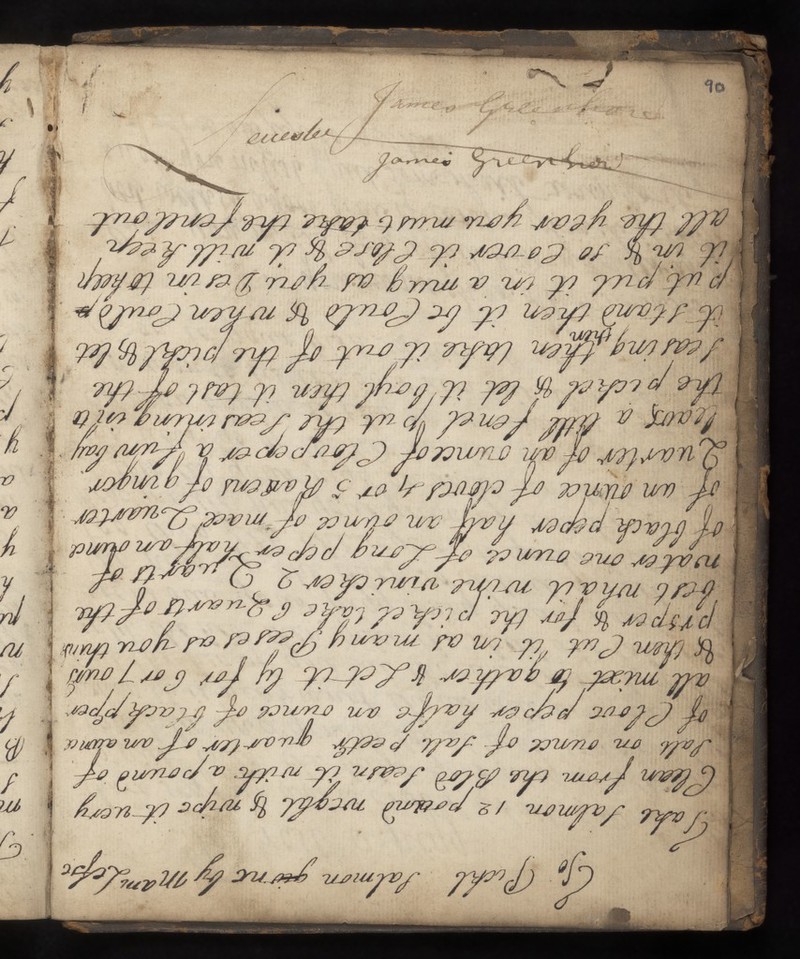 90
James Greenhow
Leicester
James Greenhow
To Pickl Salmon by mam
Take salmon 12 pound weght & wipe it very
Clean from the Blod seasn it with a pound of
salt on ounce of salt peetr quarter of an ounc
of Clove peper halfe an ounce of black pper
all mixt to gather & Let it ly for 6 or 7 ours
& then Cut it in as many Peeses as you think
proper & for the pickel take 6 Quarts of the
best whait wine vinicker 2 Quarts of
water one ounce of Long peper half an ounc
of black peper half an ounce of mace Quarter
of an ounce of cloves 4 or 5 Rasens of ginger
Quarter of an ounce of Clov peper a few bay
leavs a littl fenel put the seasining in to
the pickel & let it boyl then it last of the
seasing then then take it out of the pickl & let
it stand then it be Could & when Could
put it in a mug as you Desin to kep
it in & so Cover it Close & it will keep
all the year you must take the fenel out